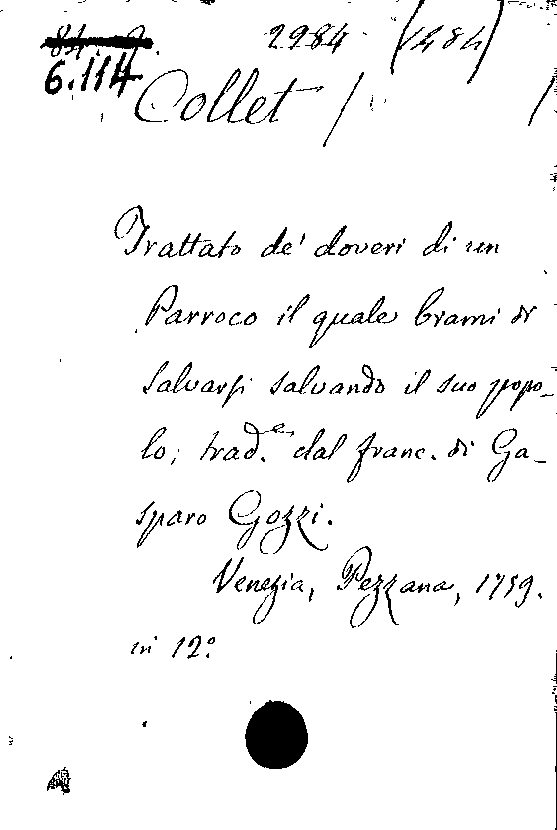 2984 (1484)
6.114
Collet /
Trattato de' doveri di un
Parroco il quale brami di
salvarsi salvando il suo popo-
lo; trad.e dal franc. di Ga-
sparo Gozzi.
Venezia, Pezzana, 1759.
in 12º